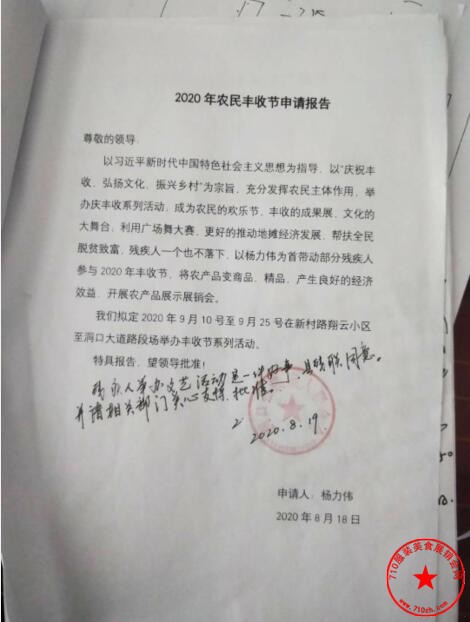 2020年农民丰收节申请报告
尊敬的领导:
以习近平新时代中国特色社会主义思想为指导，以“庆祝丰
收、弘扬文化、振兴乡村”为宗旨，充分发挥农民主体作用，举
办庆丰收系列活动，成为农民的欢乐节，丰收的成果展，文化的
大舞台，利用广场舞大赛，更好的推动地摊经济发展，帮扶全民
脱贫致富，残疾人一个也不落下，以杨力伟为首带动部分残疾人
参与2020年丰收节，将农产品变商品，精品，产生良好的经济
效益，开展农产品展示展销会。
我们拟定2020年9月10号至9月25号在新村路翔云小区
至洞口大道路段场举办丰收节系列活动。
特具报告，望领导批准!
残疾人举办文艺活动是一件好事，县残联同意。
并请相关部门关心支持，批准。
2020.8.19
申请人：杨力伟
2020年8月18日
710服装美食展销会网
www.710ch.com